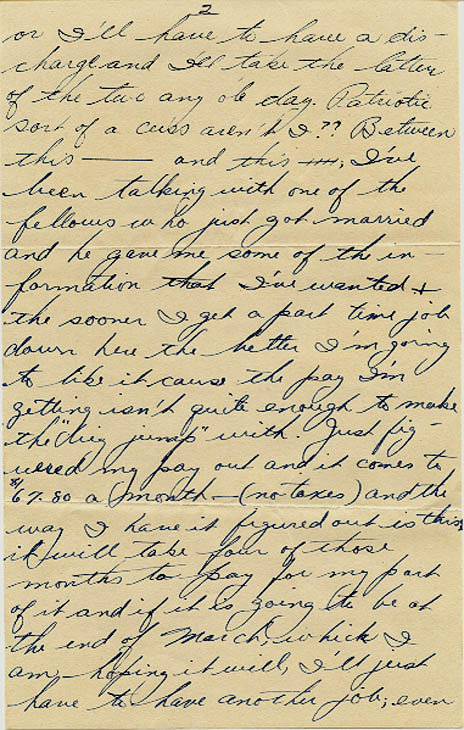 2
or I'll have to have a dis-
charge and I'll take the latter
of the two any ole day. Patriotic
sort of a cuss aren't I?? Between
this —— and this ----; I've
been talking with one of the
fellows who just got married
and he gave me some of the in-
formation that I've wanted +
the sooner I get a part time job
down here the better I'm going
to like it cause the pay I'm
getting isn't quite enough to make
the "big jump" with. Just fig-
uered my pay out and it comes to
$167.80 a month — (no taxes) and the
way I have it figured out is this,
it will take four of those
months to pay for my part
of it and if it is going to be at
the end of March, which I
am hoping it will, I'll just
have to have another job; even